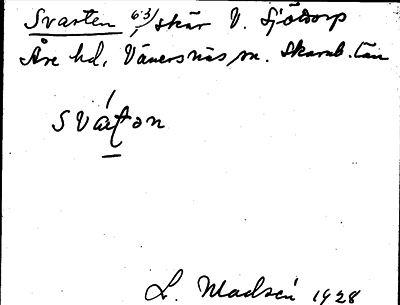 Svarten 63/, skär V. Sjötorp
Åse hd, Vänersnäs sn. Skarab. län
sva̱rtǝn
L. Madsén 1928